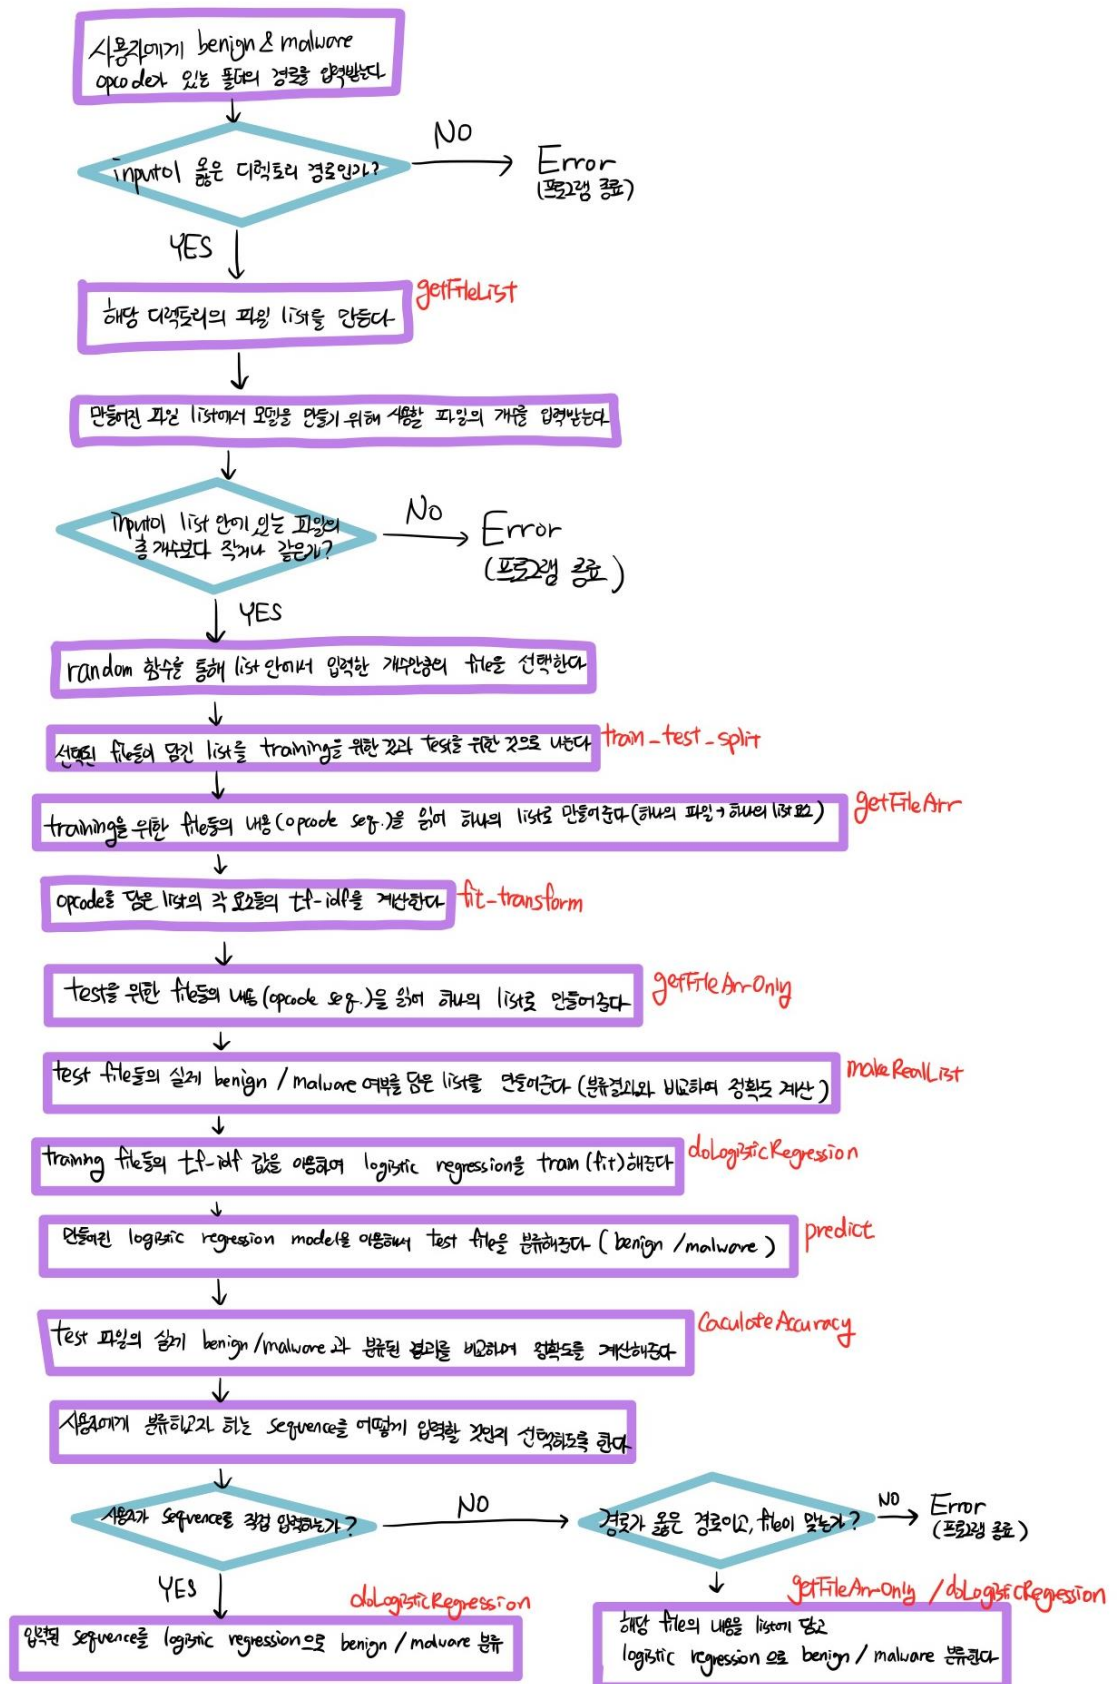 사용자에게 benign & malware
opcode가 있는 폴더의 경로를 입력받는다
input이 옳은 디렉토리 경로인가?
NO
Error
(프로그램 종료)
YES
해당 디렉토리의 파일 list를 만든다
getFileList
만들어진 파일 list에서 모델을 만들기 위해 사용할 파일의 개수를 입력받는다
input이 list 안에 있는 파일의
총 개수보다 작거나 같은가?
No
Error
(프로그램 종료)
YES
random 함수를 통해 list 안에서 입력한 개수만큼의 file을 선택한다
선택된 file들이 담긴 list를 training을 위한 것과 test를 위한 것으로 나눈다
train_test_split
training을 위한 file들의 내용(opcode seq.)을 읽어 하나의 list로 만들어준다(하나의 파일→하나의 list 요소)
getFileArr
opcode를 담은 list의 각 요소들의 tf-idf를 계산한다
fit_transform
test를 위한 file들의 내용(opcode seq.)을 읽어 하나의 list로 만들어준다
getFileArrOnly
test file들의 실제 benign / malware 여부를 담은 list를 만들어준다 (분류결과와 비교하여 정확도 계산)
makeRealList
training file들의 tf-idf 값을 이용하여 logistic regression을 train (fit)해준다
doLogisticRegression
만들어진 logistic regression model을 이용해서 test file을 분류해준다 (benign / malware)
predict
test 파일의 실제 benign/malware과 분류된 결과를 비교하여 정확도를 계산해준다
CaculateAccuracy
사용자에게 분류하고자 하는 sequence를 어떻게 입력할 것인지 선택하도록 한다
사용자가 sequence를 직접 입력하는가?
NO
경로가 옳은 경로이고, file이 맞는가?
NO
Error
(프로그램 종료)
YES
doLogisticRegression
getFileArrOnly / doLogisticRegression
입력된 sequence를 logistic regression으로 benign / malware 분류
해당 file의 내용을 list에 담고
logistic regression으로 benign / malware 분류한다